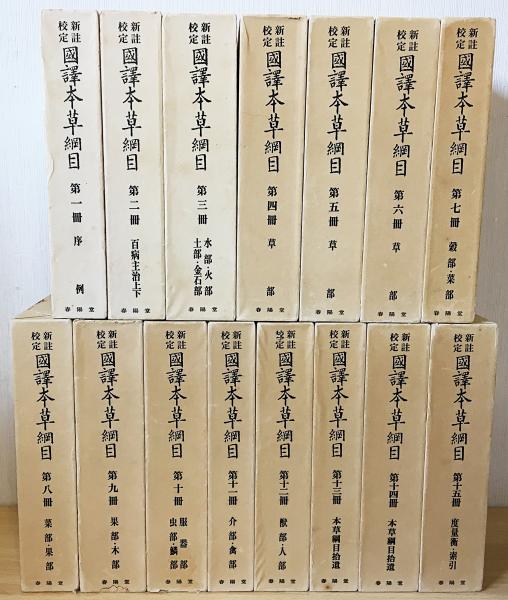 新註
校定
國譯本草綱目
第一冊
序例
春陽堂
新註
校定
國譯本草綱目
第二冊
百病主治上下
春陽堂
新註
校定
國譯本草綱目
第三冊
水部・火部
土部・金石部
春陽堂
新註
校定
國譯本草綱目
第四冊
草部
春陽堂
新註
校定
國譯本草綱目
第五冊
草部
春陽堂
新註
校定
國譯本草綱目
第六冊
草部
春陽堂
新註
校定
國譯本草綱目
第七冊
穀部・菜部
春陽堂
新註
校定
國譯本草綱目
第八冊
菜部・果部
春陽堂
新註
校定
國譯本草綱目
第九冊
果部・木部
春陽堂
新註
校定
國譯本草綱目
第十冊
服器部
虫部・鱗部
春陽堂
新註
校定
國譯本草綱目
第十一冊
介部・禽部
春陽堂
新註
校定
國譯本草綱目
第十二冊
獸部・人部
春陽堂
新註
校定
國譯本草綱目
第十三冊
本草綱目拾遺
春陽堂
新註
校定
國譯本草綱目
第十四冊
本草綱目拾遺
春陽堂
新註
校定
國譯本草綱目
第十五冊
度量衡・索引
春陽堂